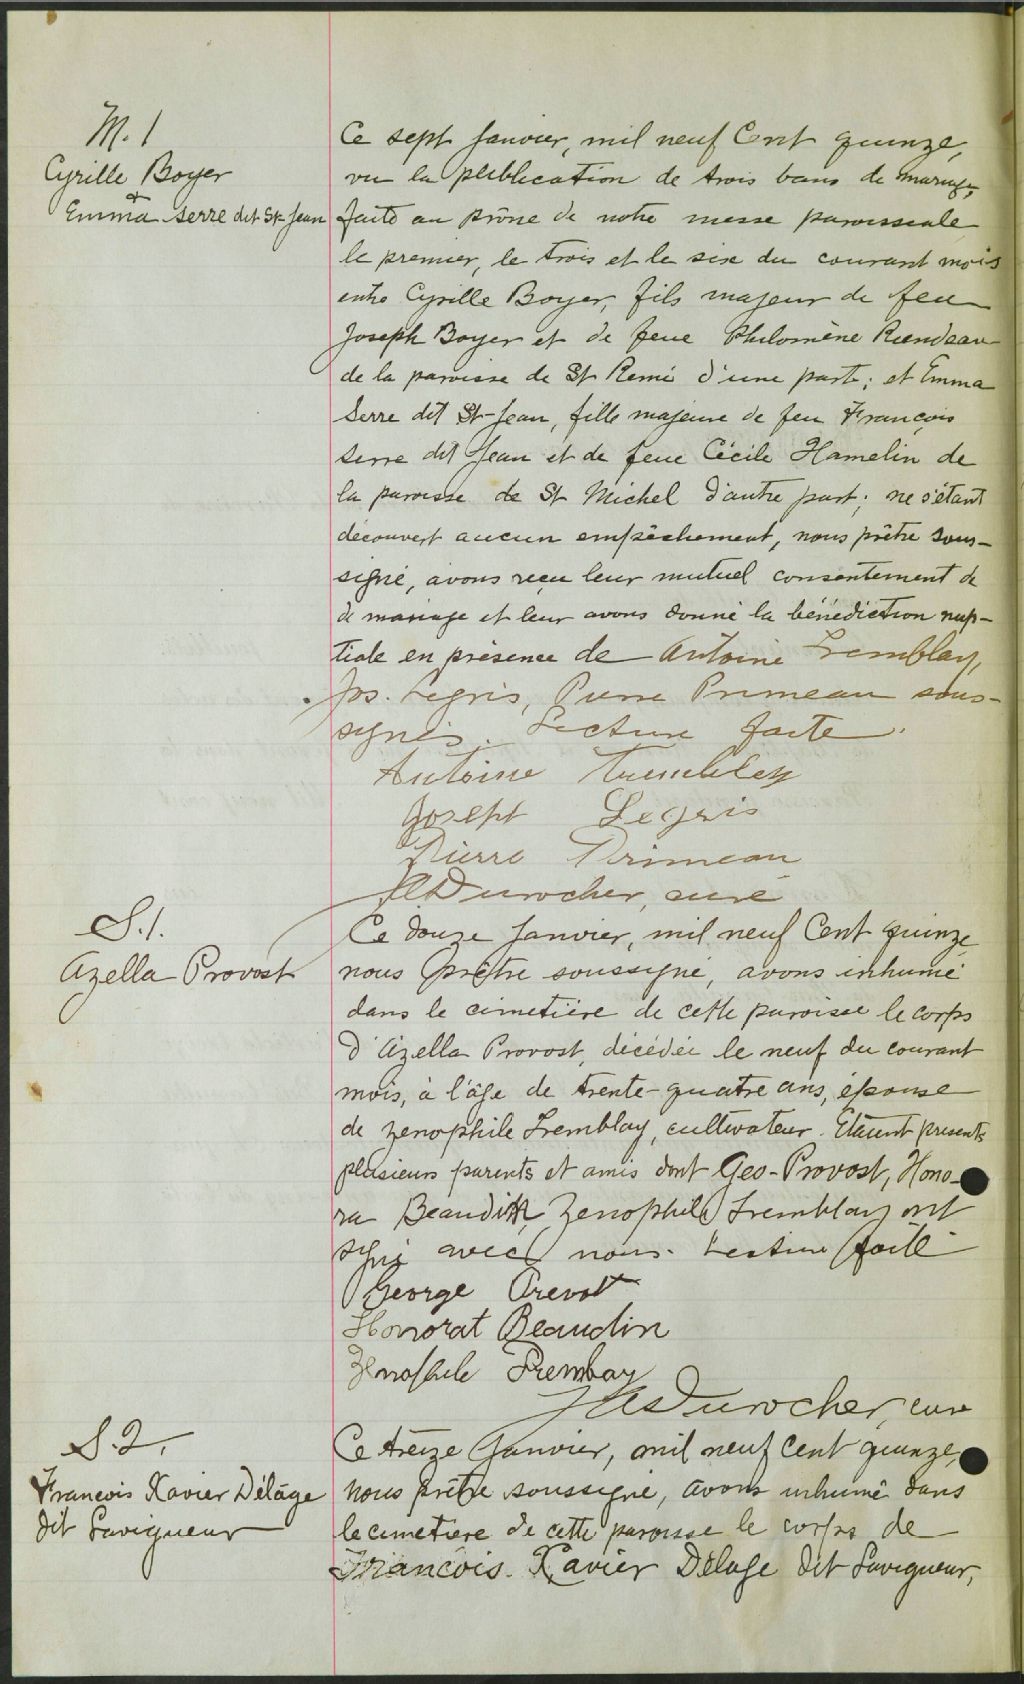 M. 1
Cyrille Boyer
&
Emma Serre dit St Jean
Ce sept Janvier, mil neuf Cent quinze,
vu la publication de trois bans de mariage,
faite au prône de notre messe paroissiale
le premier, le trois et le six du courant mois
entre Cyrille Boyer, fils majeur de feu
Joseph Boyer et de feue Philomène Riendeau
de la paroisse de St Remi d'une part; et Emma
Serre dit St-Jean, fille majeure de feu François
Serre dit Jean et de feue Cécile Hamelin de
la paroisse de St Michel d'autre part; ne s'étant
découvert aucun empêchement, nous prêtre sous-
signé, avons reçu leur mutuel consentement de
de mariage et leur avons donné la bénédiction nup-
tiale en présence de Antoine Tremblay,
Jos. Legris, Pierre Primeau sous-
signés. Lecture faite.
Antoine Trembley
Joseph Legris
Pierre Primeau
Durocher, curé
S. 1.
Azella Provost
Ce douze Janvier, mil neuf Cent quinze
nous prêtre soussigné, avons inhumé
dans le cimetière de cette paroisse le corps
d'Azella Provost, décédée le neuf du courant
mois, à l'âge de trente-quatre ans, épouse
de Zenophile Tremblay, cultivateur. Etaient présents
plusieurs parents et amis dont Geo-Provost, Hono-
ra Beaudin, Zenophile Tremblay ont
signé avec nous. Lecture faite
George Prevost
Honorat Beaudin
Zenophile Trembay
Durocher, curé
S. 2.
Francois Xavier Délâge
dit Lavigueur
Ce treize Janvier, mil neuf cent quinze,
nous prêtre soussigné, avons inhumé dans
le cimetière de cette paroisse le corps de
François-Xavier Délage dit Lavigueur,